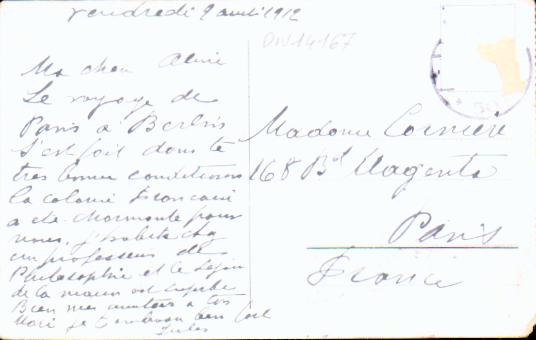 Vendredi 9 avril 1912
DIV14-167
Ma chere Aline
Le voyage de
Paris à Berlin
s'est fait dans de
tres bonnes conditions
la colonie Francaise
a été charmante pour
nous, j'habite chez
un professeur de
Philosophie et le
de la maison est superbe
Bien mes amitiés à ton
Mari je t'embrasse bien fort
Jules
Madame
168 Bd Magenta
Paris
France